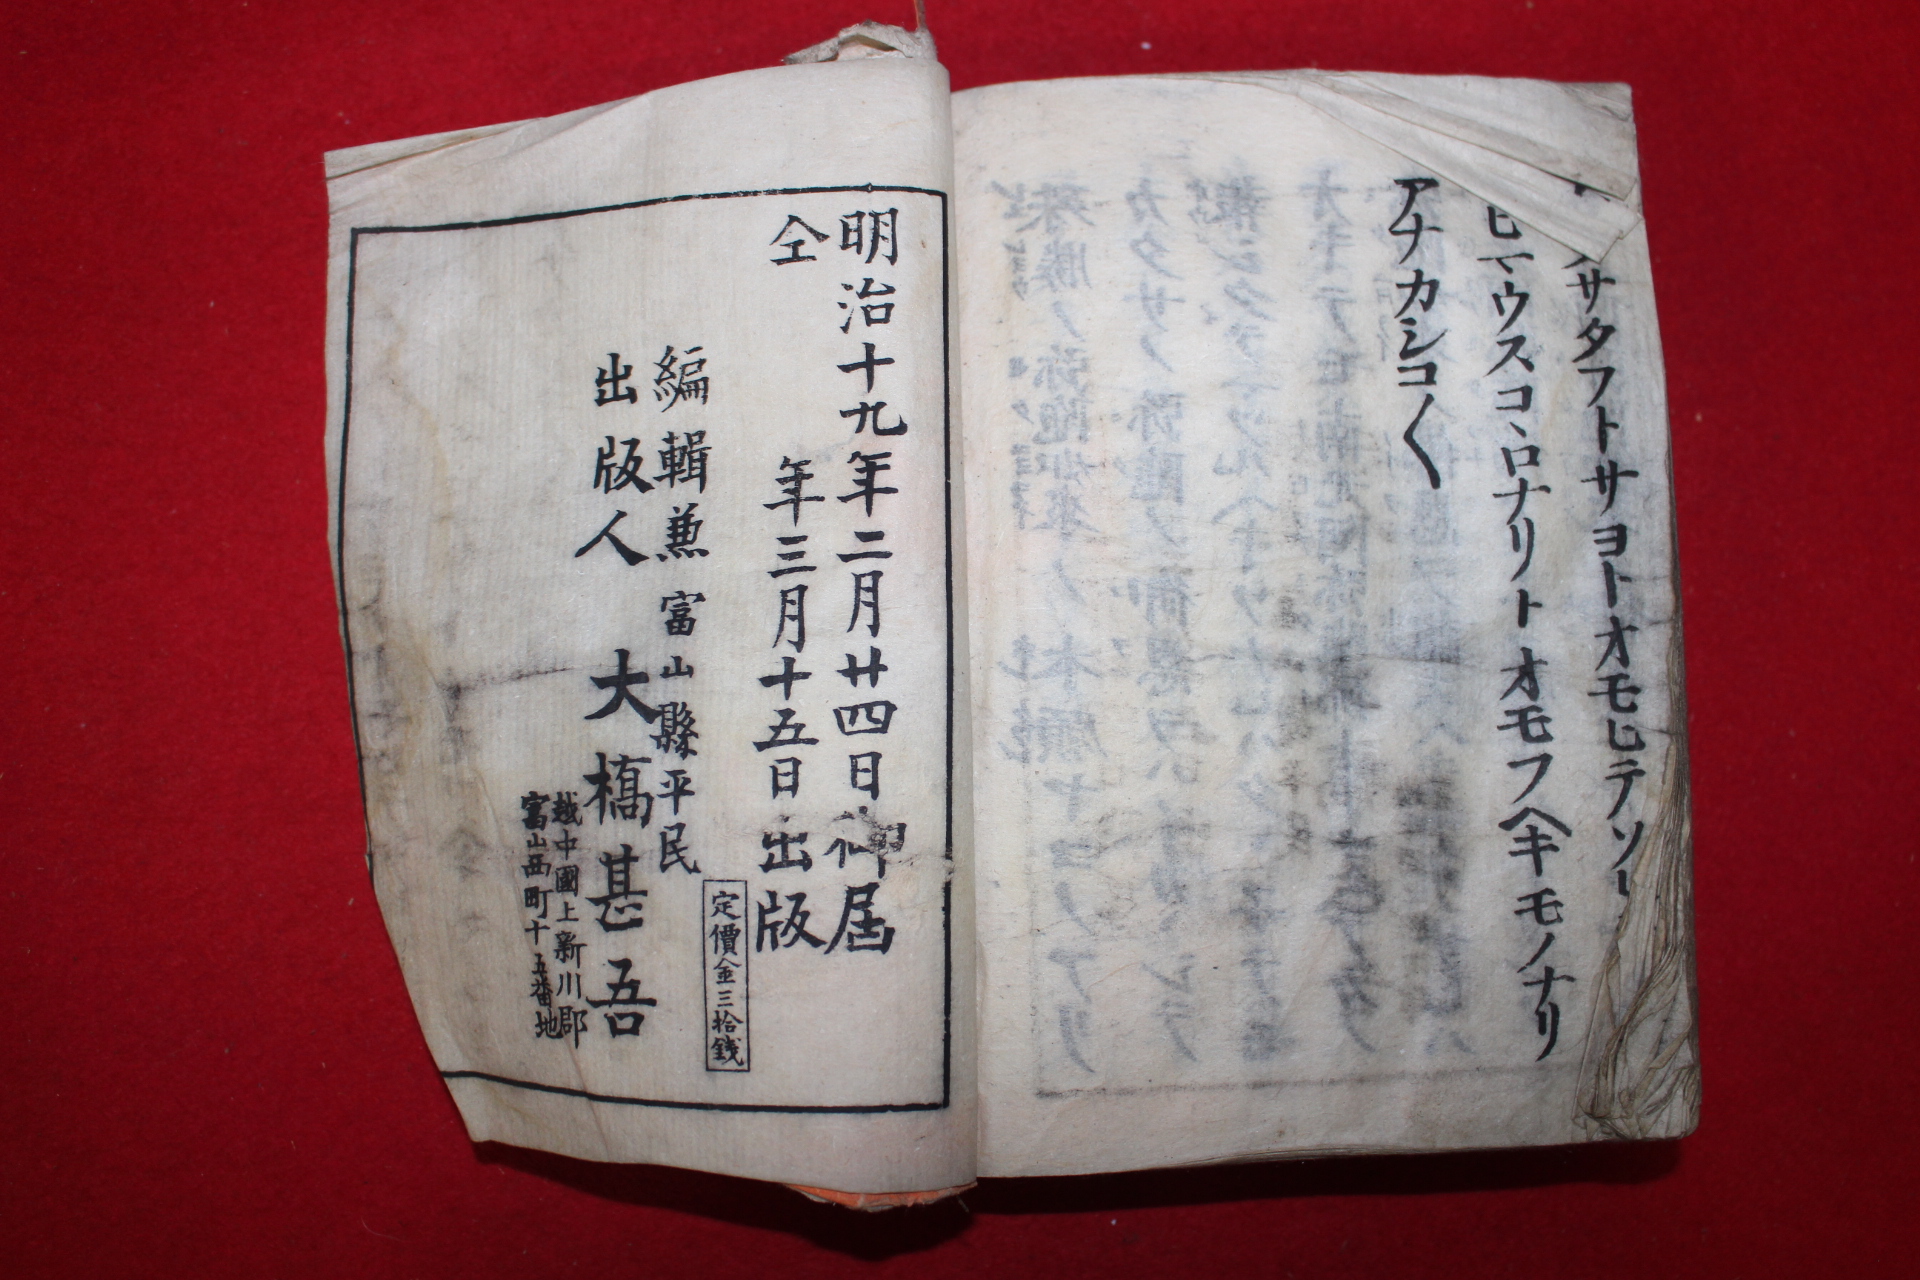 サタフトサヨトオモヒテソ
ヒマウスコヽロナリトオモフヘキモノナリ
アナカシコ〱
明治十九年二月廿四日御届
仝年三月十五日出版
定價金三拾錢
編輯兼富山縣平民
出版人大槗甚吾
越中國上新川郡
富山西町十五番地